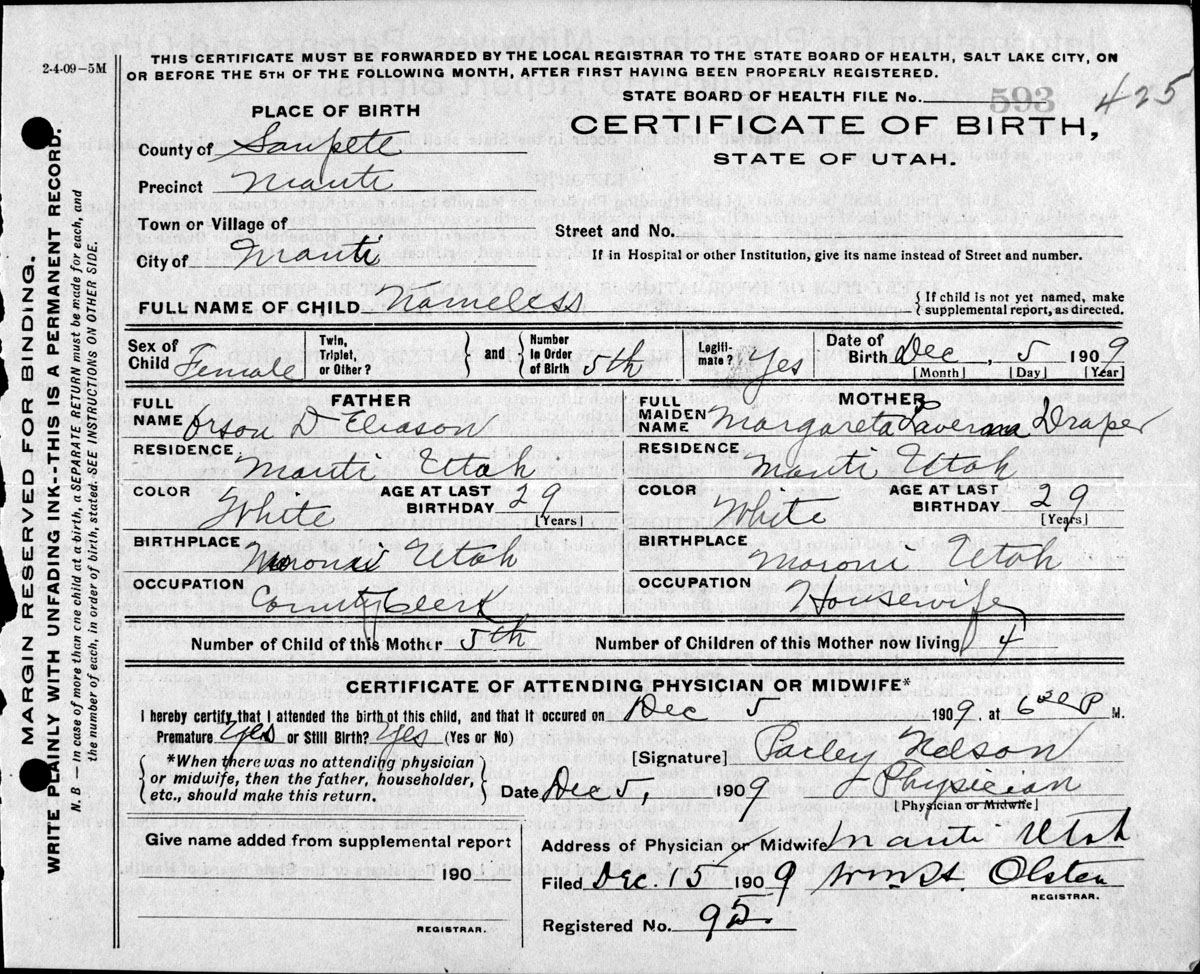 2-4-09-5M
THIS CERTIFICATE MUST BE FORWARDED BY THE LOCAL REGISTRAR TO THE STATE BOARD OF HEALTH, SALT LAKE CITY, ON
OR BEFORE THE 5TH OF THE FOLLOWING MONTH, AFTER FIRST HAVING BEEN PROPERLY REGISTERED.
STATE BOARD OF HEALTH FILE No. 593 425
PLACE OF BIRTH
CERTIFICATE OF BIRTH,
STATE OF UTAH.
County of Sanpete
Precinct Manti
Town or Village of
Street and No.
City of Manti
If in Hospital or other Institution, give its name instead of Street and number.
FULL NAME OF CHILD Nameless
{ If child is not yet named, make
supplemental report, as directed.
Sex of Child Female
Twin, Triplet, or Other? } and { Number In Order of Birth 5th
Legiti- mate? Yes
Date of Birth Dec, 5 1909
[Month] [Day] [Year]
FATHER
MOTHER
FULL NAME Orson D Eliason
FULL MAIDEN NAME Margareta Draper
RESIDENCE Manti Utah
RESIDENCE Manti Utah
COLOR White AGE AT LAST BIRTHDAY 29 [Years]
COLOR White AGE AT LAST BIRTHDAY 29 [Years]
BIRTHPLACE Moroni Utah
BIRTHPLACE Moroni Utah
OCCUPATION County Clerk
OCCUPATION Housewife
Number of Child of this Mother 5th Number of Children of this Mother now living 4
CERTIFICATE OF ATTENDING PHYSICIAN OR MIDWIFE*
I hereby certify that I attended the birth of this child, and that it occured on Dec 5 1909, at 6 30 P M.
Premature Yes or Still Birth? Yes (Yes or No)
[Signature] Parley Nelson
{ *When there was no attending physician
or midwife, then the father, householder,
etc., should make this return. }
Date Dec 5, 1909 Physician
[Physician or Midwife]
Give name added from supplemental report
190
REGISTRAR.
Address of Physician or Midwife Manti Utah
Filed Dec. 15 1909 Olsten
REGISTRAR.
Registered No. 92
MARGIN RESERVED FOR BINDING.
WRITE PLAINLY WITH UNFADING INK--THIS IS A PERMANENT RECORD.
N. B — In case of more than one child at a birth, a SEPARATE RETURN must be made for each, and
the number of each, in order of birth, stated. SEE INSTRUCTIONS ON OTHER SIDE.